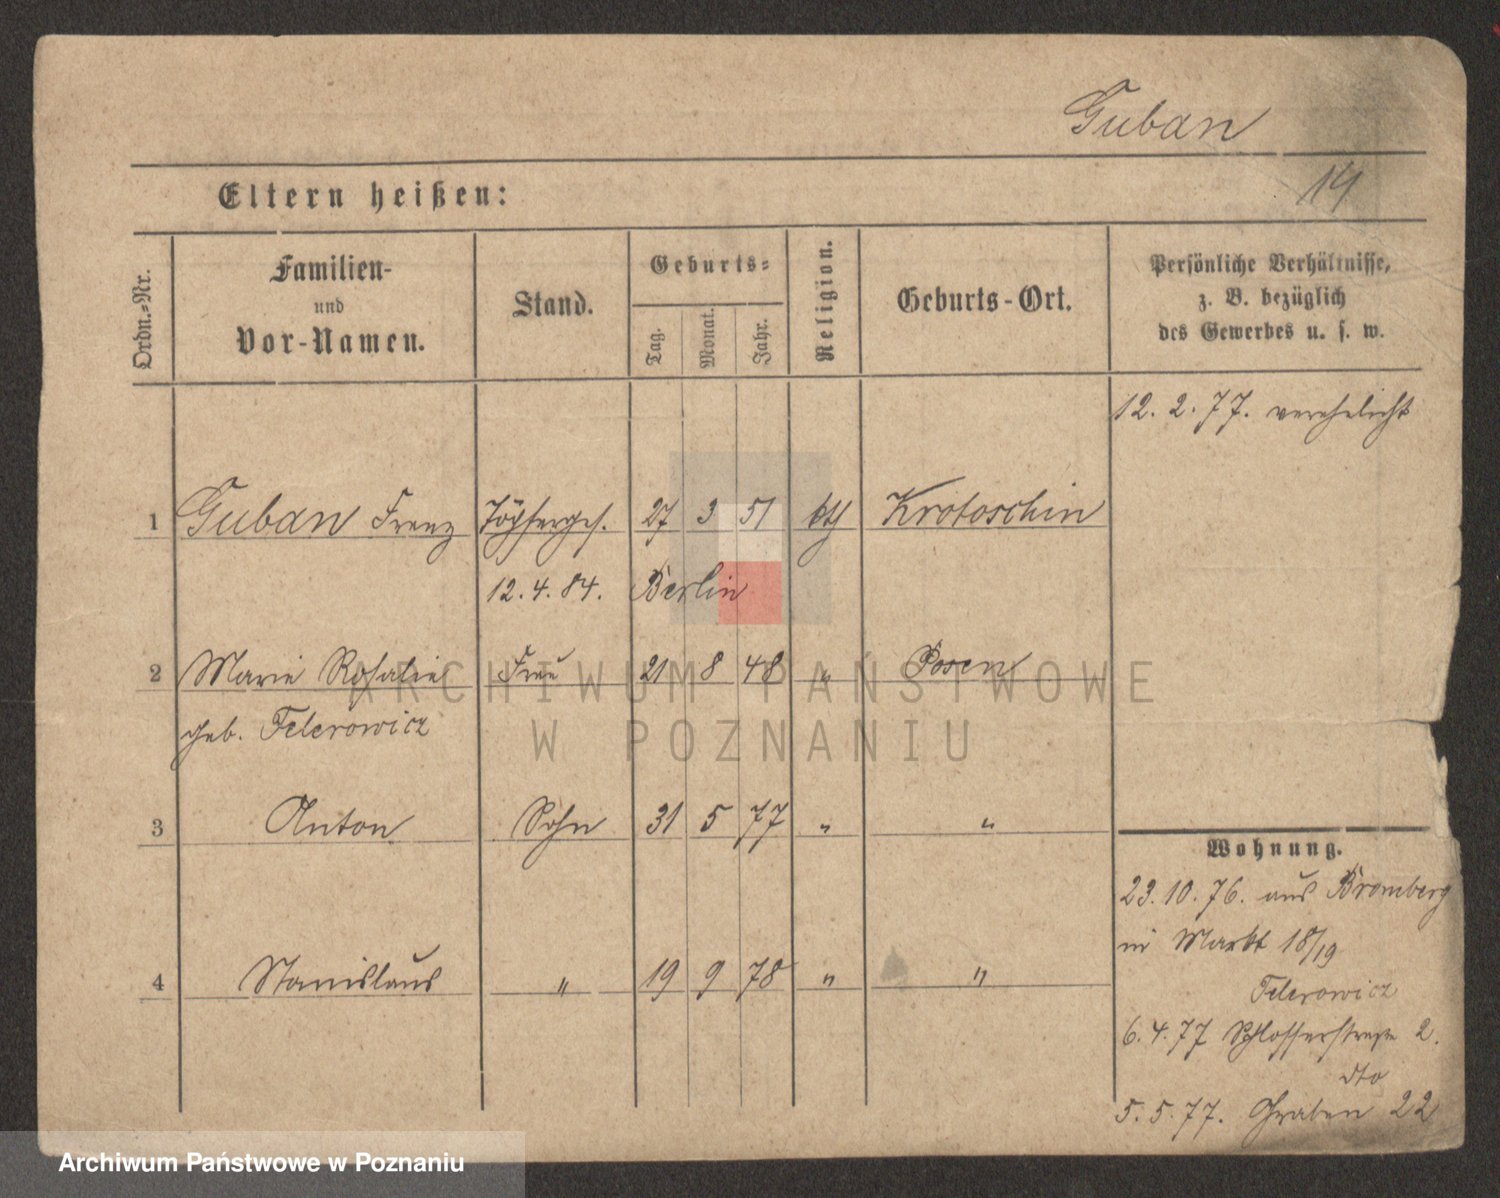 Guban
14
Eltern heißen:
Ordn.-Nr.
Familien-
und
Vor-Namen.
Stand.
Geburts-
Tag.
Monat.
Jahr.
Religion.
Geburts-Ort.
Persönliche Verhältnisse,
z. B. bezüglich
des Gewerbes u. s. w.
12. 2. 77. verehelicht
1 Guban Franz Töpferges. 27 3 51 kth Krotoschin
12. 4. 84. Berlin
2 Marie Rosalie Frau 21 8 48 " Posen
geb. Felerowicz
3 Anton Sohn 31 5 77 " "
4 Stanislaus " 19 9 78 " "
Wohnung.
23. 10. 76. aus Bromberg
in Markt 18/19
Felerowicz
6. 4. 77 Schlosserstraße 2.
dto
5. 5. 77. Graben 22
ARCHIWUM PAŃSTWOWE
W POZNANIU
Archiwum Państwowe w Poznaniu